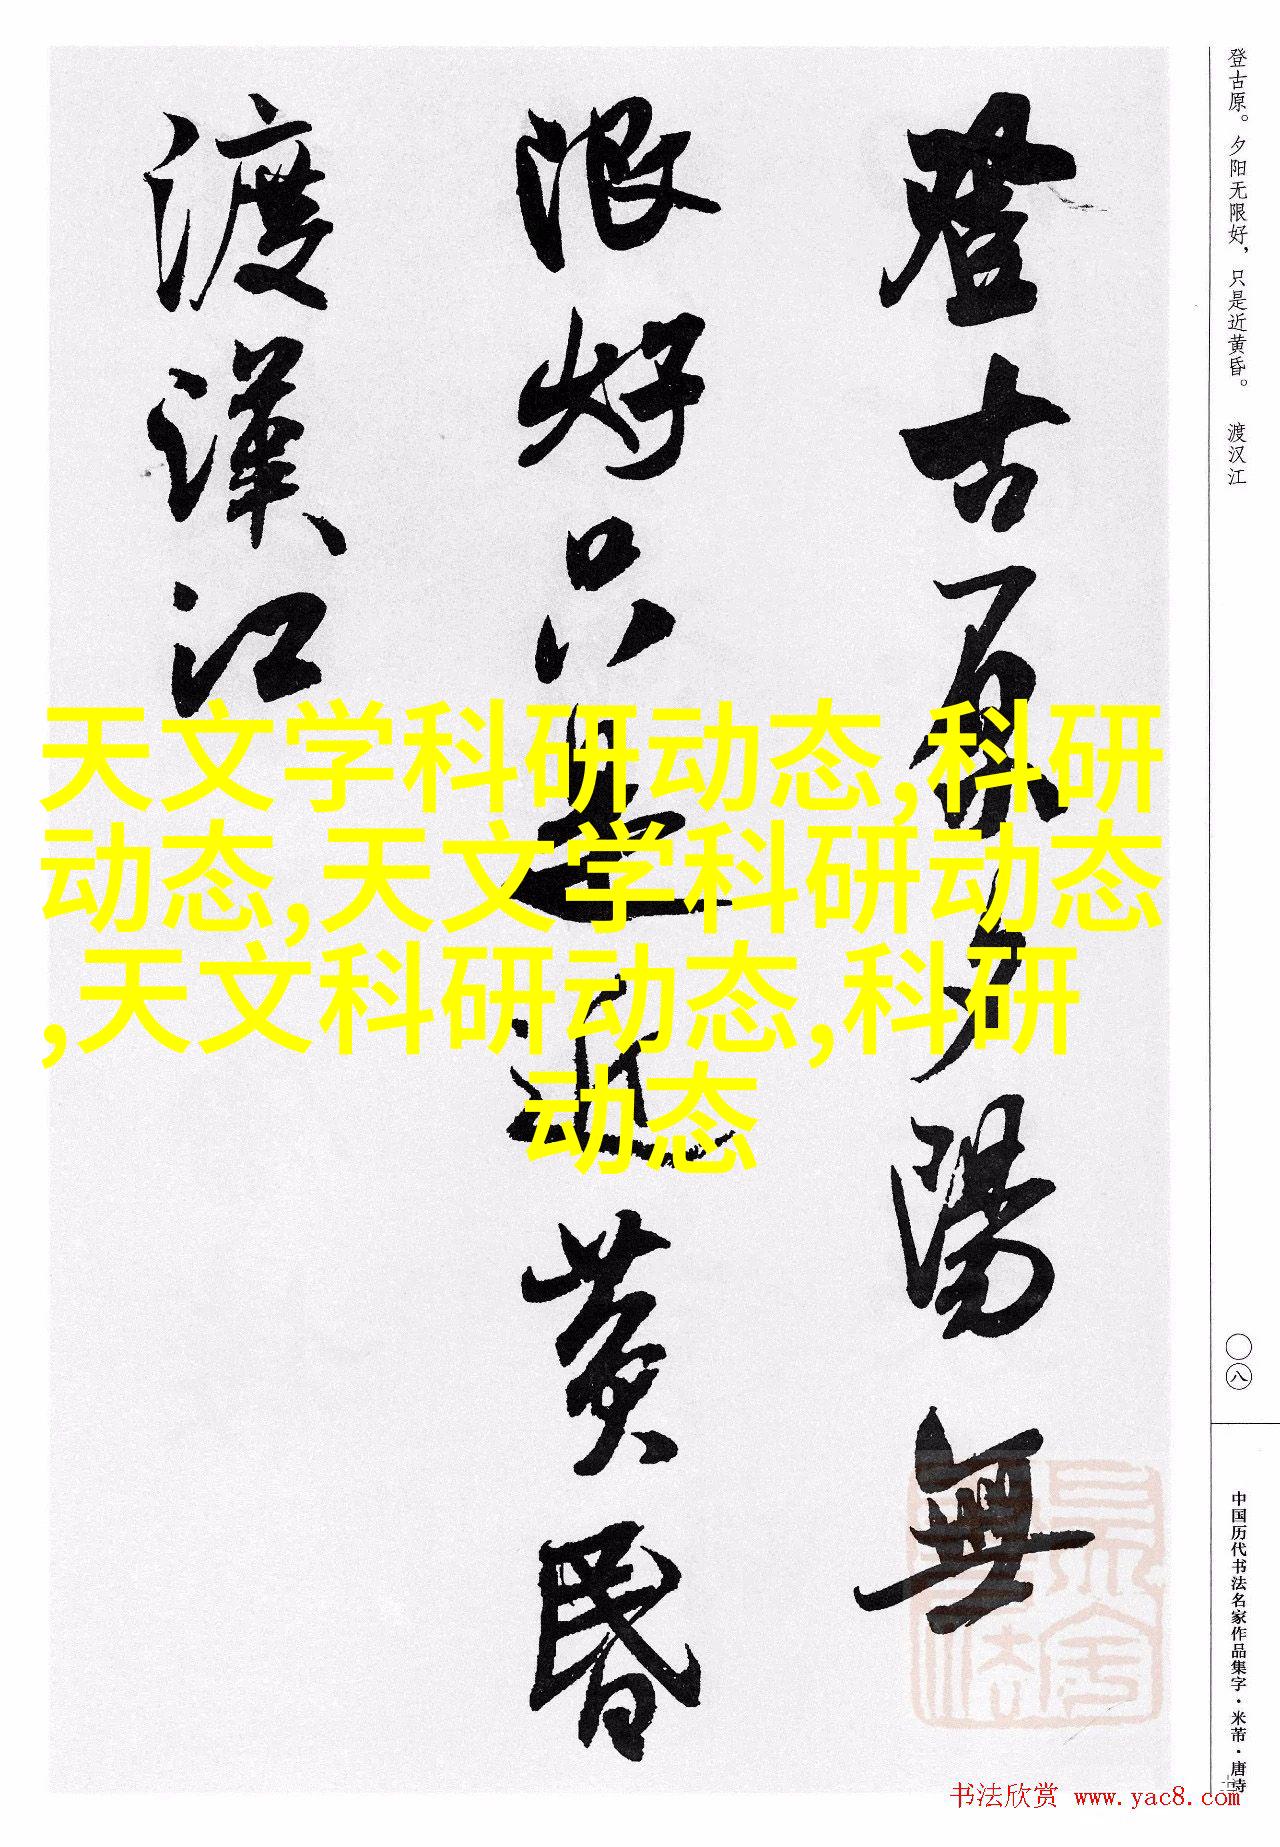 登古原。夕阳无限好，只是近黄昏。 渡汉江
登古原夕陽無
限好只是近黄昏
渡漢江
天文学科研动态,科研
动态,天文学科研动态
,天文科研动态,科研
动态
〇八
中国历代书法名家作品集字·米芾·唐诗
书法欣赏 www.yac8.com